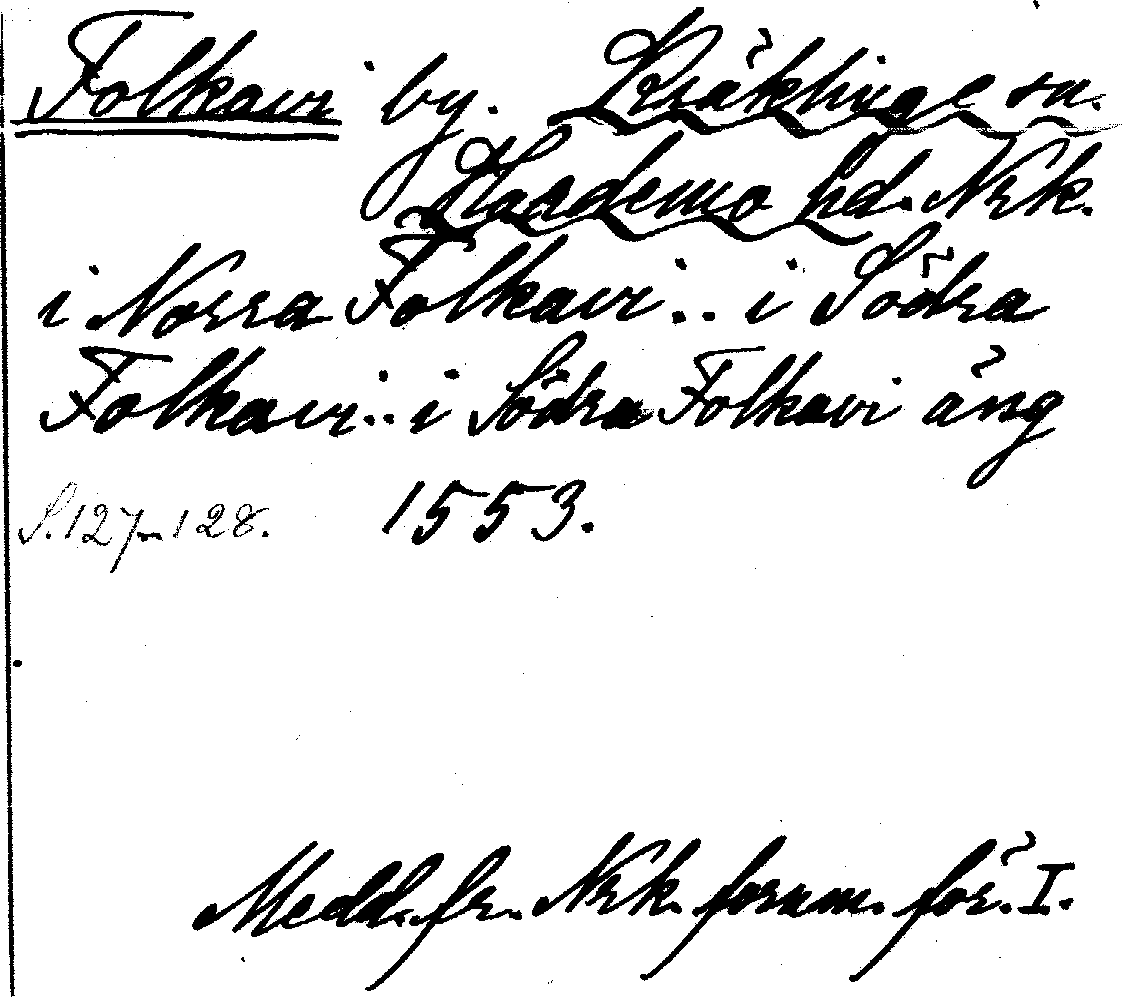 Folkavi by. Kräklinge sn.
Hardemo hd. Nrk.
i Norra Folkavi .. i Södra
Folkavi .. i Södra Folkavi äng
S. 127 m 128. 1553.
Medd. fr. Nrk. fornm. för. I.